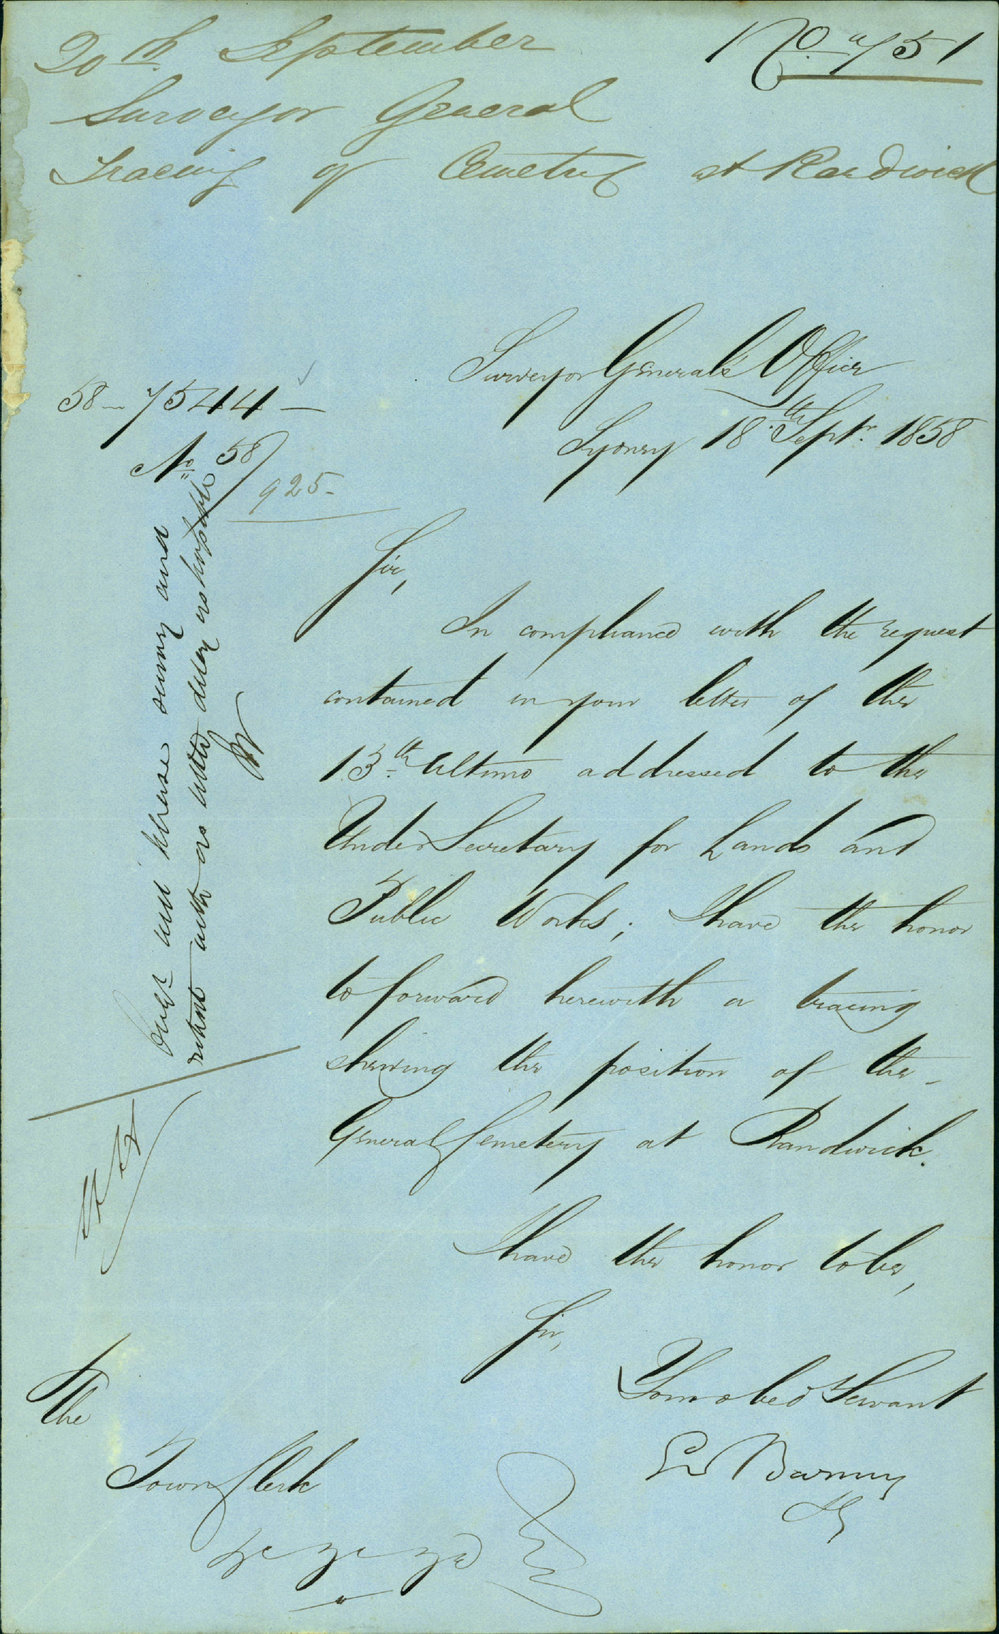 20th September
No. 751
Surveyor General
Tracing of Cemetery at Randwick
Surveyor General's Office
Sydney 18th Septr. 1858
58-7544-
No 58/
925-
Sir,
In compliance with the request
contained in your letter of the
13th Ultimo addressed to the
Under Secretary for Lands and
Public Works; I have the honor
to forward herewith a tracing
shewing the position of the
General Cemetery at Randwick.
I have the honor to be,
Sir,
Your obedt Servant
G Barney
SG
The
Town Clerk
and
with as little delay as possible